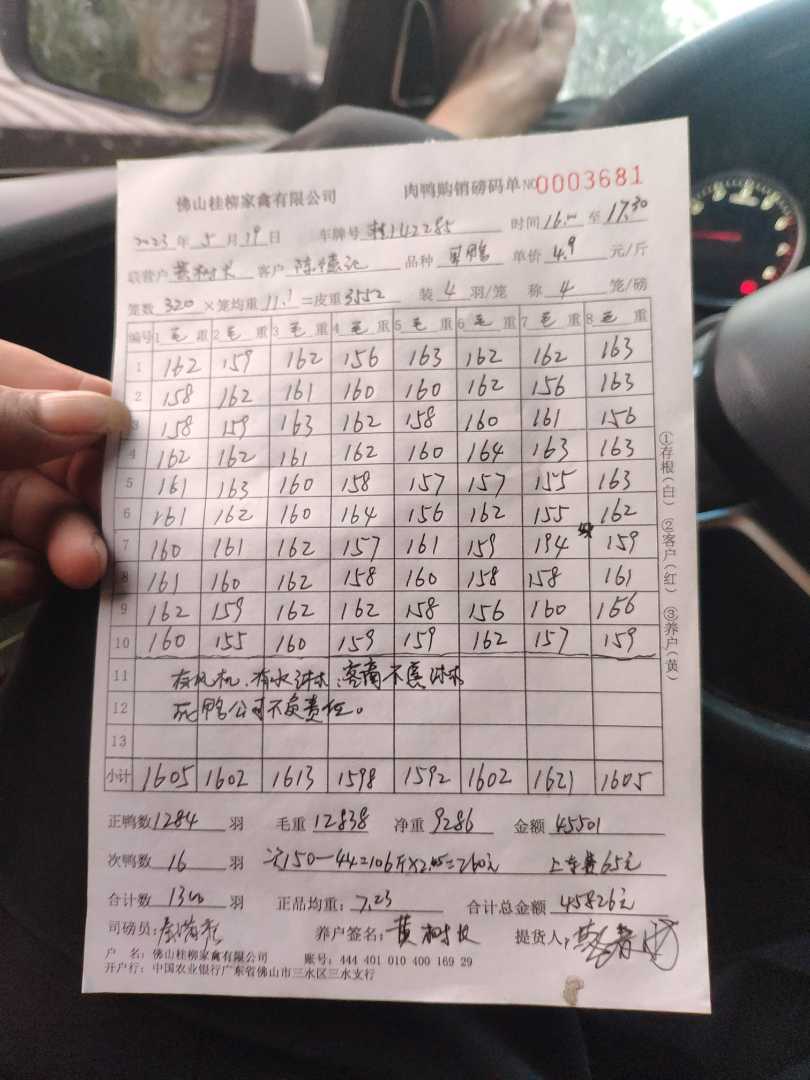 佛山桂柳家禽有限公司 肉鸭购销磅码单 NO 0003681
2023 年 5 月 19 日 车牌号 142285 时间 16.00 至 17.30
联营户 黄树长 客户 陈德记 品种 单价 4.9 元/斤
笼数 320 ×笼均重 11.1 =皮重 3552 装 4 羽/笼 称 4 笼/磅
编号 1 毛 重 2 毛 重 3 毛 重 4 毛 重 5 毛 重 6 毛 重 7 毛 重 8 毛 重
1 162 159 162 156 163 162 162 163
2 158 162 161 160 160 162 156 163
3 158 159 163 162 158 160 161 156
4 162 162 161 162 160 164 163 163
5 161 163 160 158 157 157 155 163
6 161 162 160 164 156 162 155 162
7 160 161 162 157 161 159 194 159
8 161 160 162 158 160 158 158 161
9 162 159 162 162 158 156 160 156
10 160 155 160 159 159 162 157 159
11 有风机、有水淋、客商不 淋水
12 死鸭公司不负责任。
13
小计 1605 1602 1613 1598 1592 1602 1621 1605
正鸭数 1284 羽 毛重 12838 净重 9286 金额 45501
次鸭数 16 羽 次150-44=106斤×2.45=260元 上车费65元
合计数 1300 羽 正品均重: 7.23 合计总金额 45826元
司磅员: 养户签名: 黄树长 提货人:
户 名: 佛山桂柳家禽有限公司 账号: 444 401 010 400 169 29
开户行: 中国农业银行广东省佛山市三水区三水支行
①存根(白) ②客户(红) ③养户(黄)